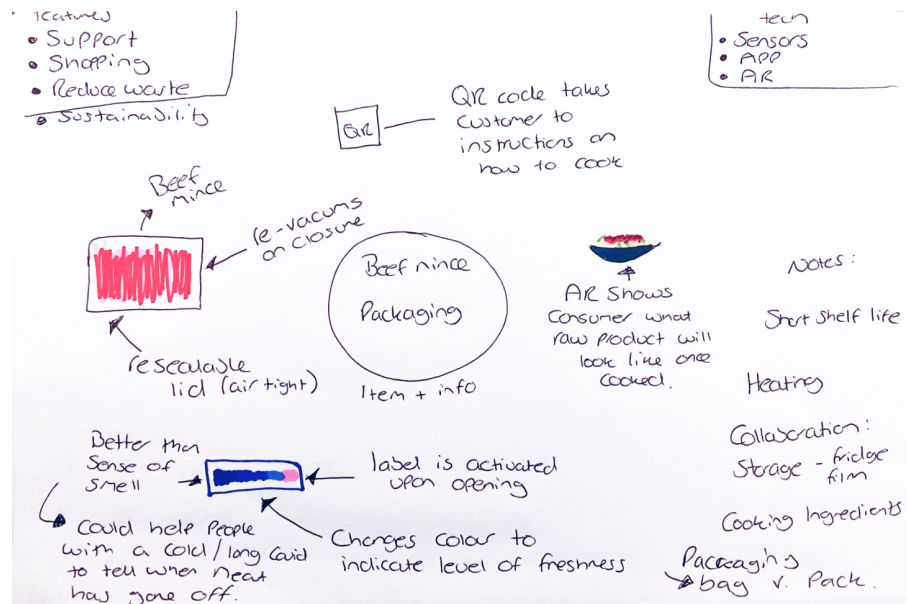 features
• Support
• Shopping
• Reduce waste
• Sustainability
tech
• Sensors
• APP
• AR
QR
QR code takes
customer to
instructions on
how to cook
Beef
mince
re-vacums
on closure
resealable
lid (air tight)
Beef mince
Packaging
Item + info
AR Shows
Consumer what
raw product will
look like once
cooked.
Notes:
Short shelf life
Heating
Collaboration:
Storage - fridge
film
Cooking Ingredients
Packaging
bag v. Pack.
Better than
Sense of
smell
label is activated
upon opening
Changes colour to
indicate level of freshness
Could help people
with a cold/long Covid
to tell when meat
has gone off.